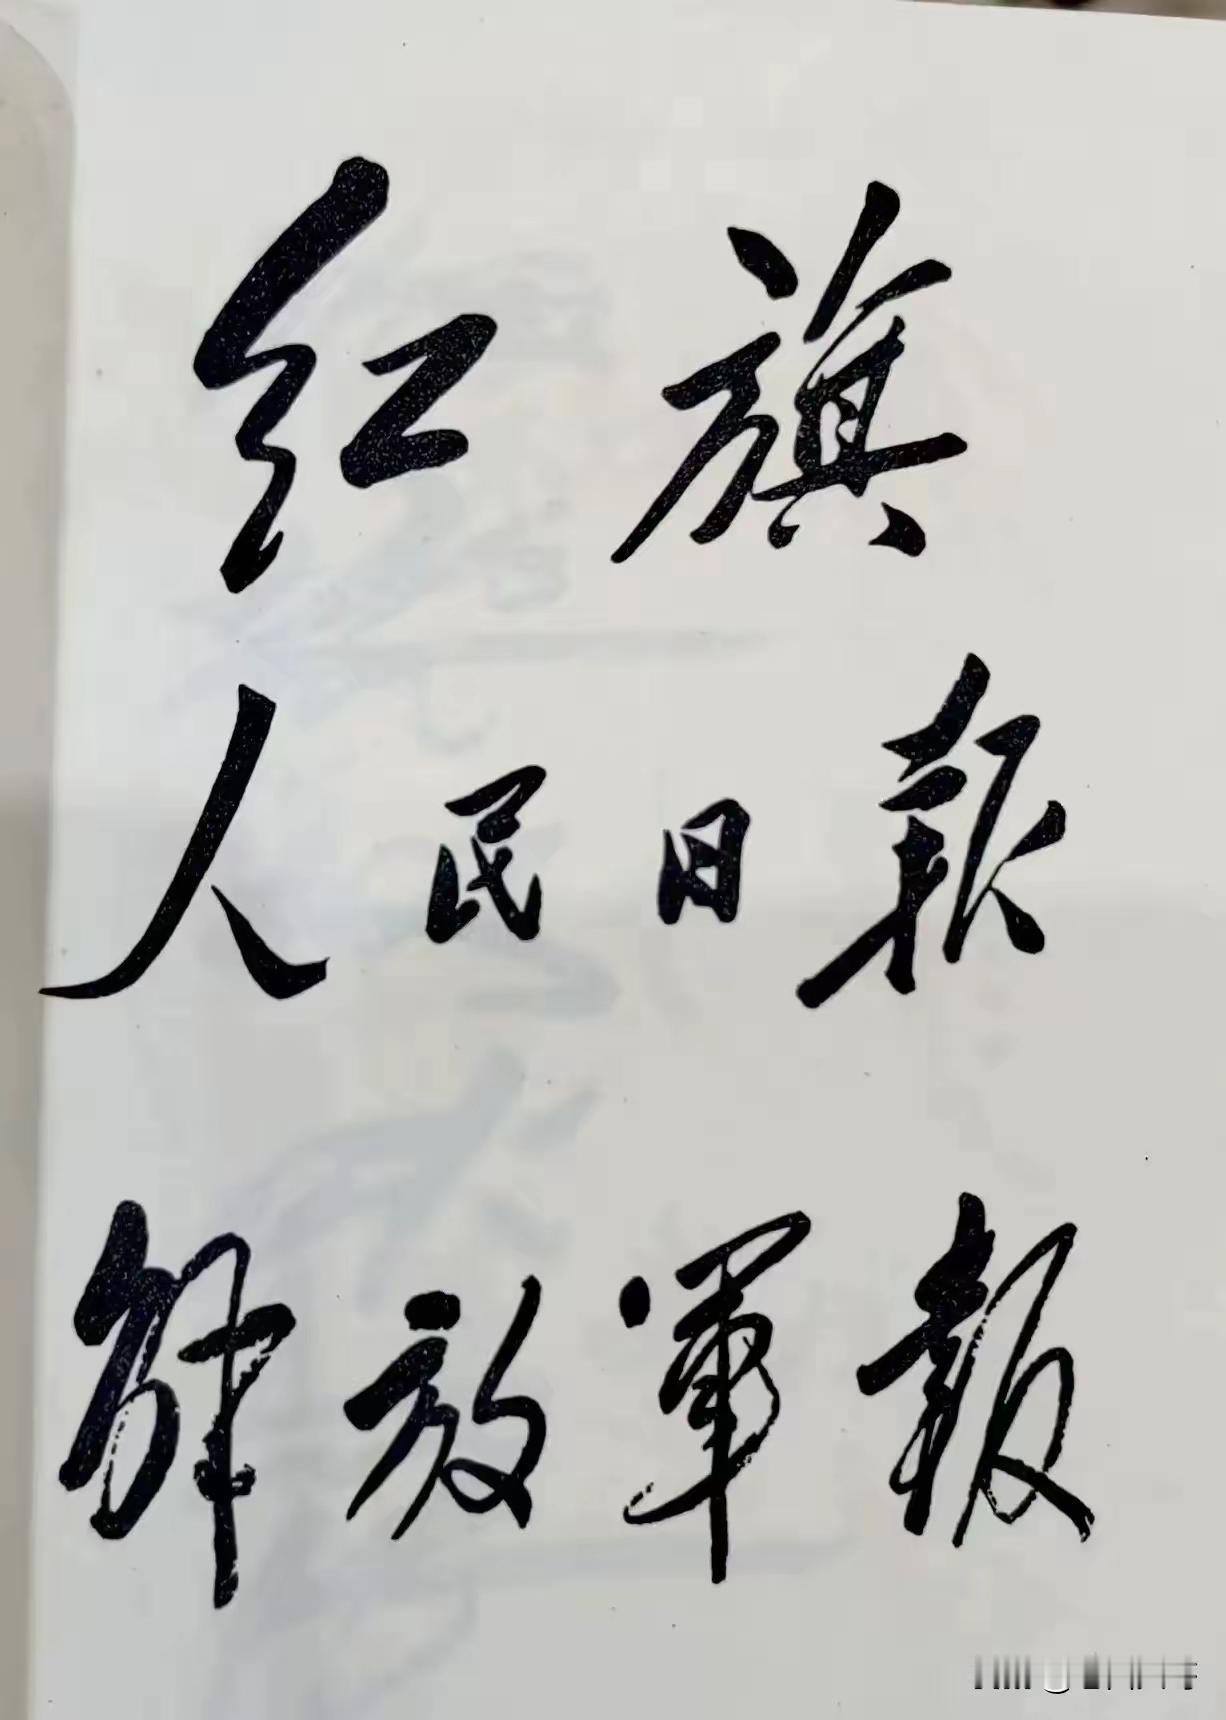 红旗
人民日報
解放軍報